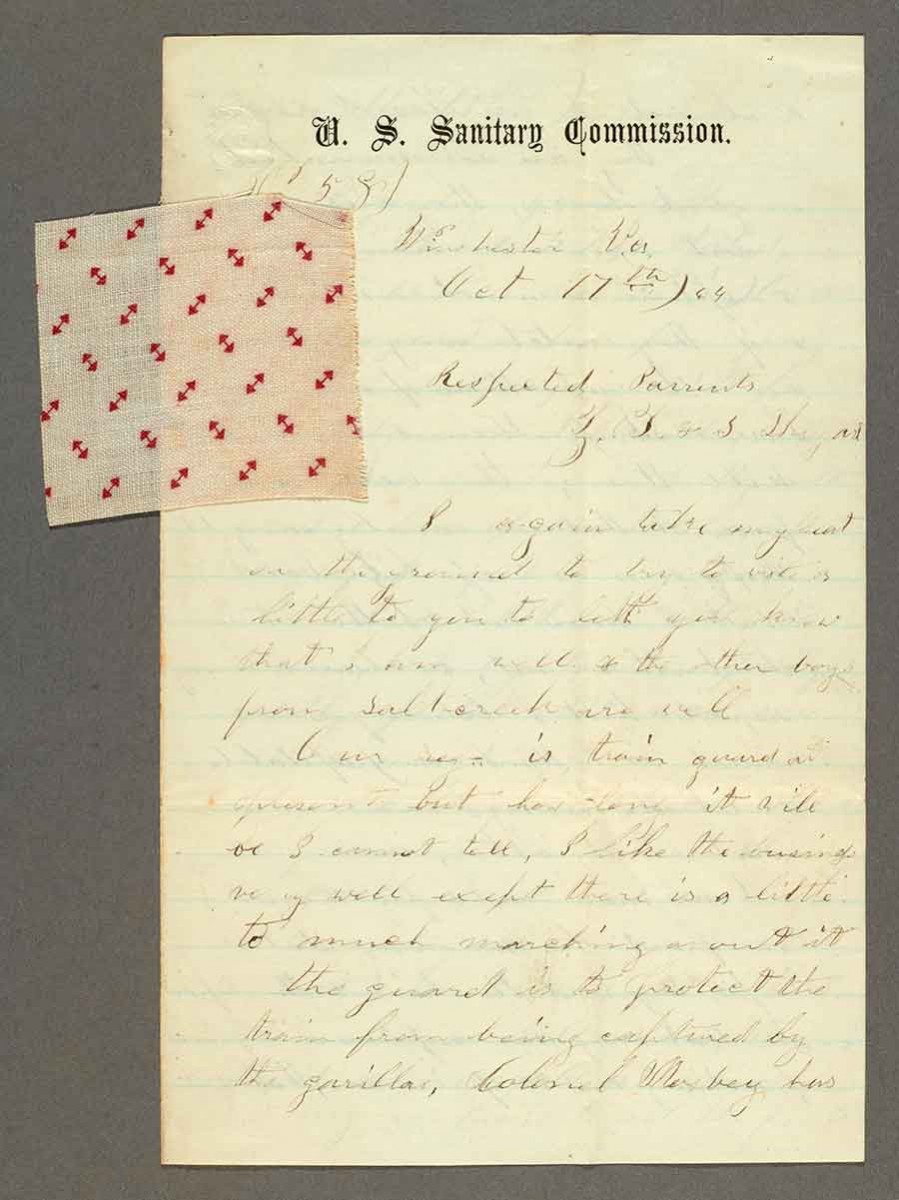 U. S. Sanitary Commission.
Winchester Va.
Oct 17th) 64
Respected Parrents
I again take my seat
on the ground to try to write a
little to you to lett you know
that I am well & the other boys
from Saltcreek are well
Our reg= is train guard at
present but how long it will
be I cannot tell, I like the business
very well exept there is a little
to much marching about it
the guard is to protect the
train from being captured by
the gorillas, Colonel Mosbey has